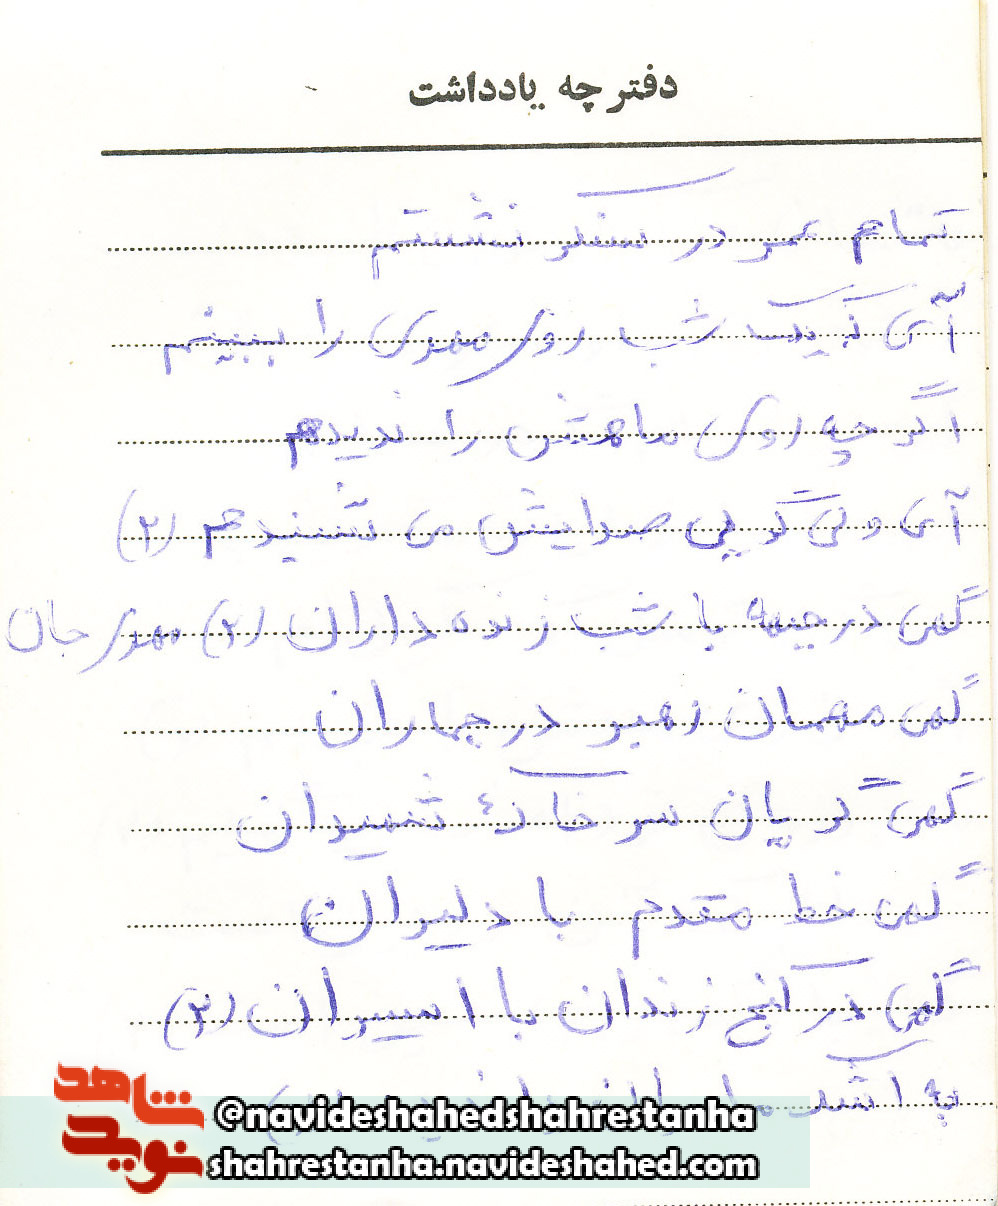 دفترچه یادداشت
تمام عمر در سنگر نشستم
آی که یک شب روی مهدی را ببینم
اگر چه روی ماهش را ندیدم
آی ولی گویی صدایش می شنیدم (۲)
گهی در جبهه با شب زنده داران (۲) مهدی جان
گهی مهمان رهبر در جماران
گهی گریان سر خاک شهیدان
گهی خط مقدم با دلیران
گهی در کنج زندان با اسیران (۲)
به اشک
شاهد
نوید
@navideshahedshahrestanha
shahrestanha.navideshahed.com